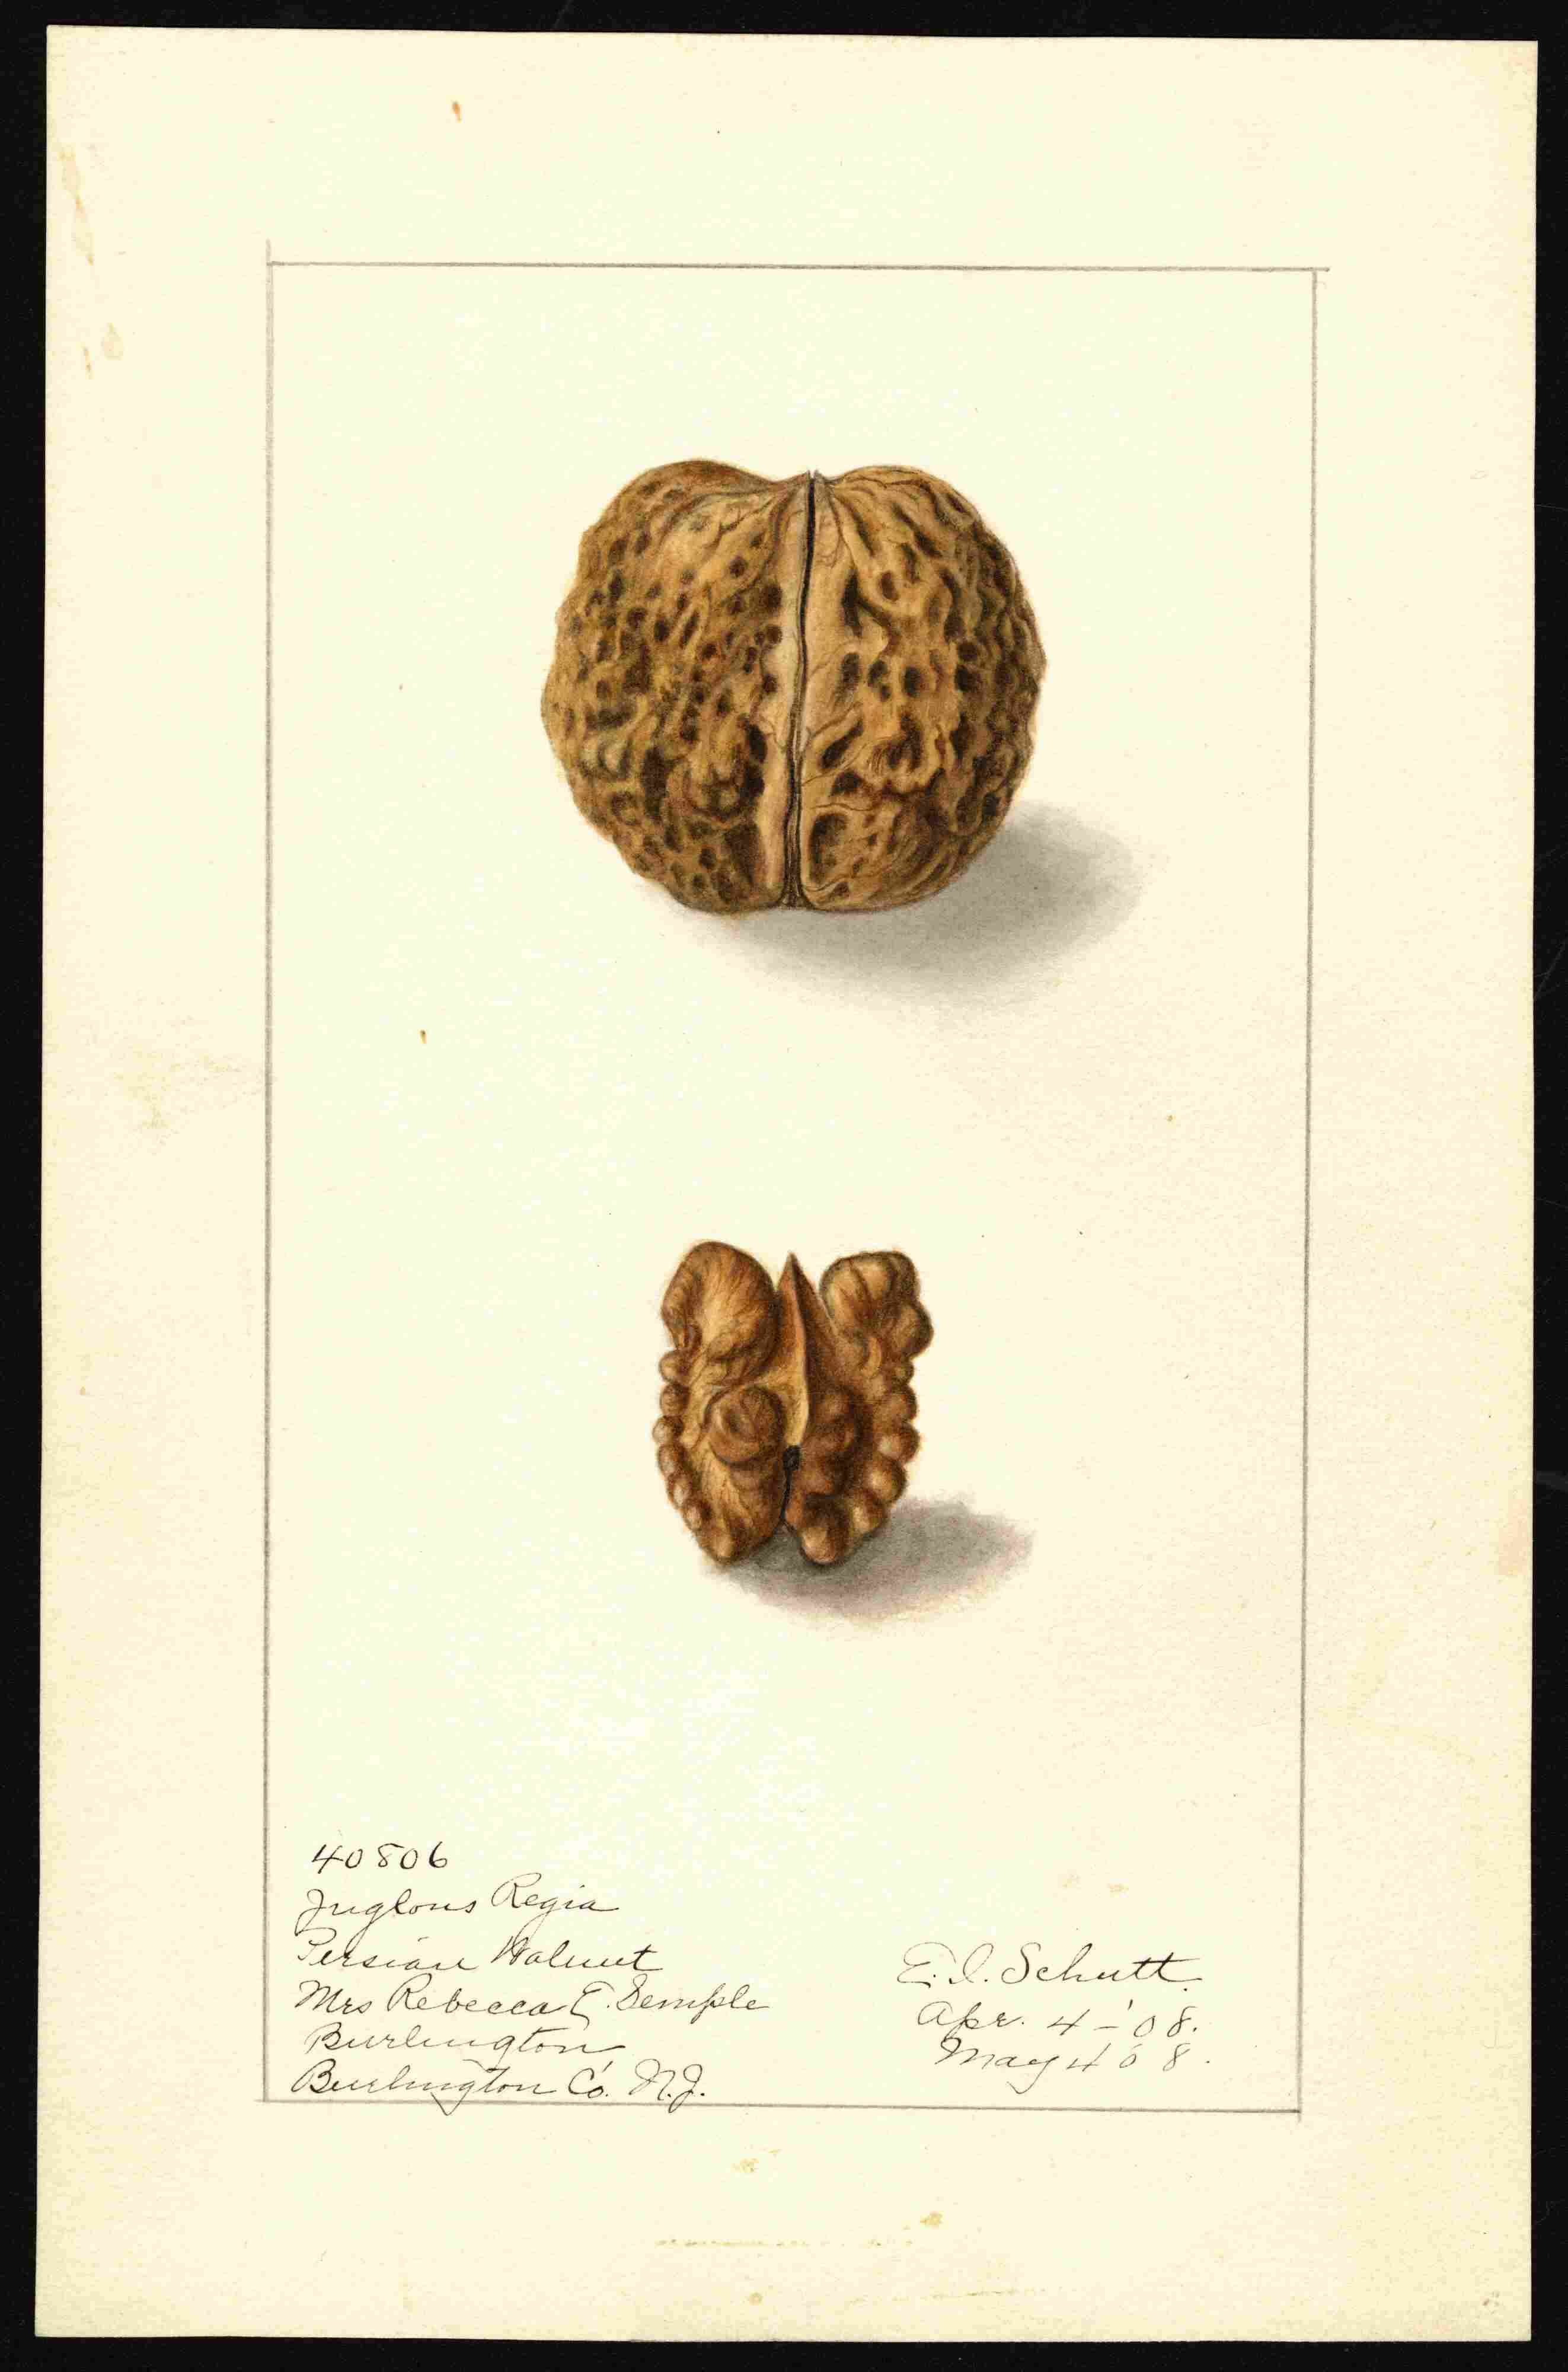 40806
Juglans Regia
Persian Walnut
Mrs Rebecca T. Semple
Burlington
Burlington Co. N.J.
E.I. Schutt.
Apr. 4-'08.
May 4 '08.